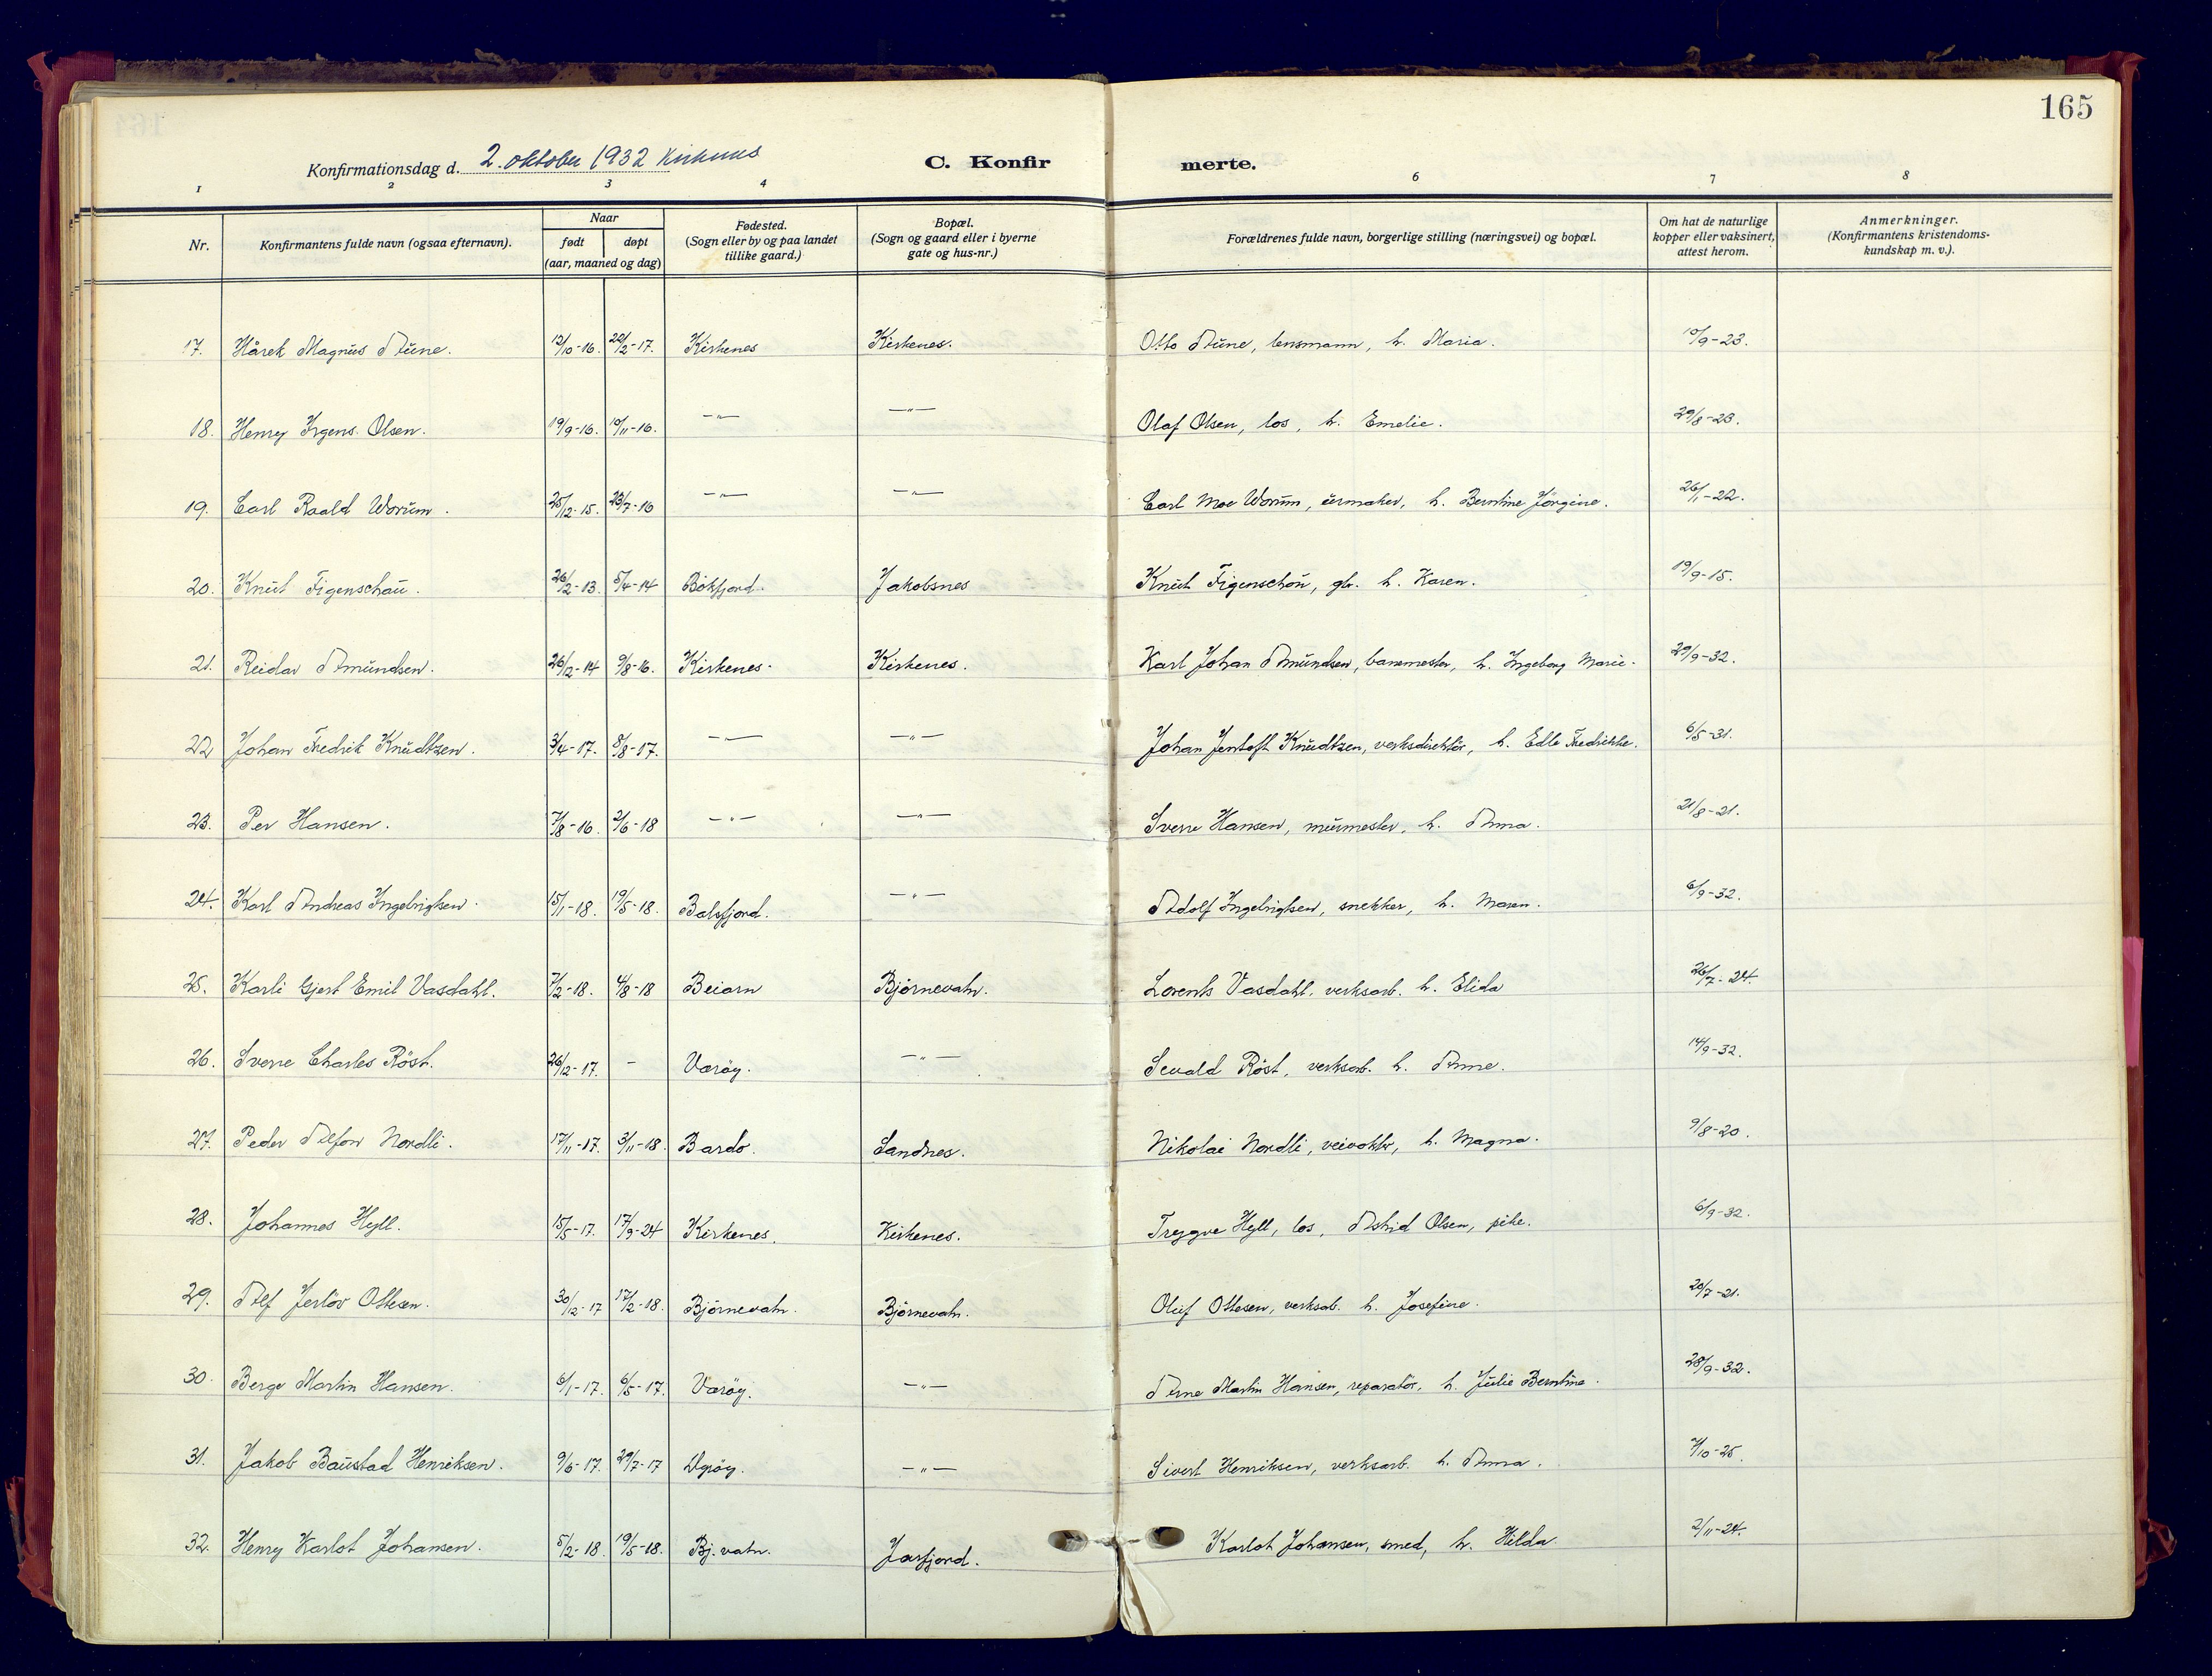 165
Konfirmationsdag d. 2. oktober 1932 Kirkenes
C. Konfirmerte.
1 2 3 4 6 7 8
Nr. | Konfirmantens fulde navn (ogsaa efternavn). | Naar født døpt (aar, maaned og dag) | Fødested. (Sogn eller by og paa landet tillike gaard.) | Bopæl. (Sogn og gaard eller i byerne gate og hus-nr.) | Forældrenes fulde navn, borgerlige stilling (næringsvei) og bopæl. | Om hat de naturlige kopper eller vaksinert, attest herom. | Anmerkninger. (Konfirmantens kristendomskundskap m. v.).
17. Hårek Magnus Aune. 12/10-16. 22/2-17. Kirkenes Kirkenes. Otto Aune, lensmann, h. Maria. 10/9-23.
18. Henry Irgens Olsen. 19/9-16. 10/11-16. —"— —"— Olaf Olsen, los, h. Emelie. 29/8-23.
19. Carl Roald Worum. 25/12-15. 23/7-16 —"— —"— Carl Moe Worum, urmaker, h. Berntine Jörgine. 26/1-22.
20. Knut Figenschau. 26/2-13. 5/4-14 Bökfjord. Jakobsnes Knut Figenschou, gbr. h. Karen. 19/9-15.
21. Reidar Amundsen. 26/12-14 9/8-16. Kirkenes. Kirkenes. Karl Johan Amundsen, banemester, h. Ingeborg Marie. 29/9-32.
22 Johan Fredrik Knudtzen. 3/4-17. 5/8-17. —"— —"— Johan Jentoft Knudtzen, verksdirektör, h. Edle Fredrikke. 6/5-31.
23. Per Hansen. 7/8-16. 2/6-18 —"— —"— Sverre Hansen, murmester, h. Anna. 21/8-21.
24. Karl Andreas Ingebrigtsen. 15/1-18. 19/5-18. Balsfjord. —"— Adolf Ingebrigtsen, snekker, h. Maren. 6/9-32.
25. Karli Gjert Emil Vasdahl. 7/2-18. 4/8-18 Beiarn Björnevatn. Lorents Vasdahl, verksarb. h. Elida 26/7-24.
26. Sverre Charles Röst. 26/12-17. - Væröy. —"— Sevald Röst, verksarb. h. Anne. 14/9-32.
27. Peder Alfon Nordli. 17/11-17. 3/11-18. Bardo. Sandnes. Nikolai Nordli, veivokter, h. Magna. 9/8-20.
28. Johannes Hyll. 15/5-17. 17/9-24 Kirkenes. Kirkenes. Trygve Hyll, los, Astrid Olsen, pike. 6/9-32.
29. Alf Jerlöv Ottesen. 30/12-17 17/2-18. Björnevatn. Björnevatn. Oluf Ottesen, verksarb. h. Josefine. 20/7-21.
30. Berge Martin Hansen. 6/1-17. 6/5-17. Væröy. —"— Arne Martin Hansen, reparatör, h. Julie Berntine. 28/9-32.
31. Jakob Baustad Henriksen. 9/6-17. 29/7-17 Dyröy. —"— Sivert Henriksen, verksarb. h. Anna. 7/10-25.
32. Henry Karlot Johansen. 5/2-18. 19/5-18. Bj.vatn. Jarfjord. Karlot Johansen, smed, h. Hilda 2/11-24.